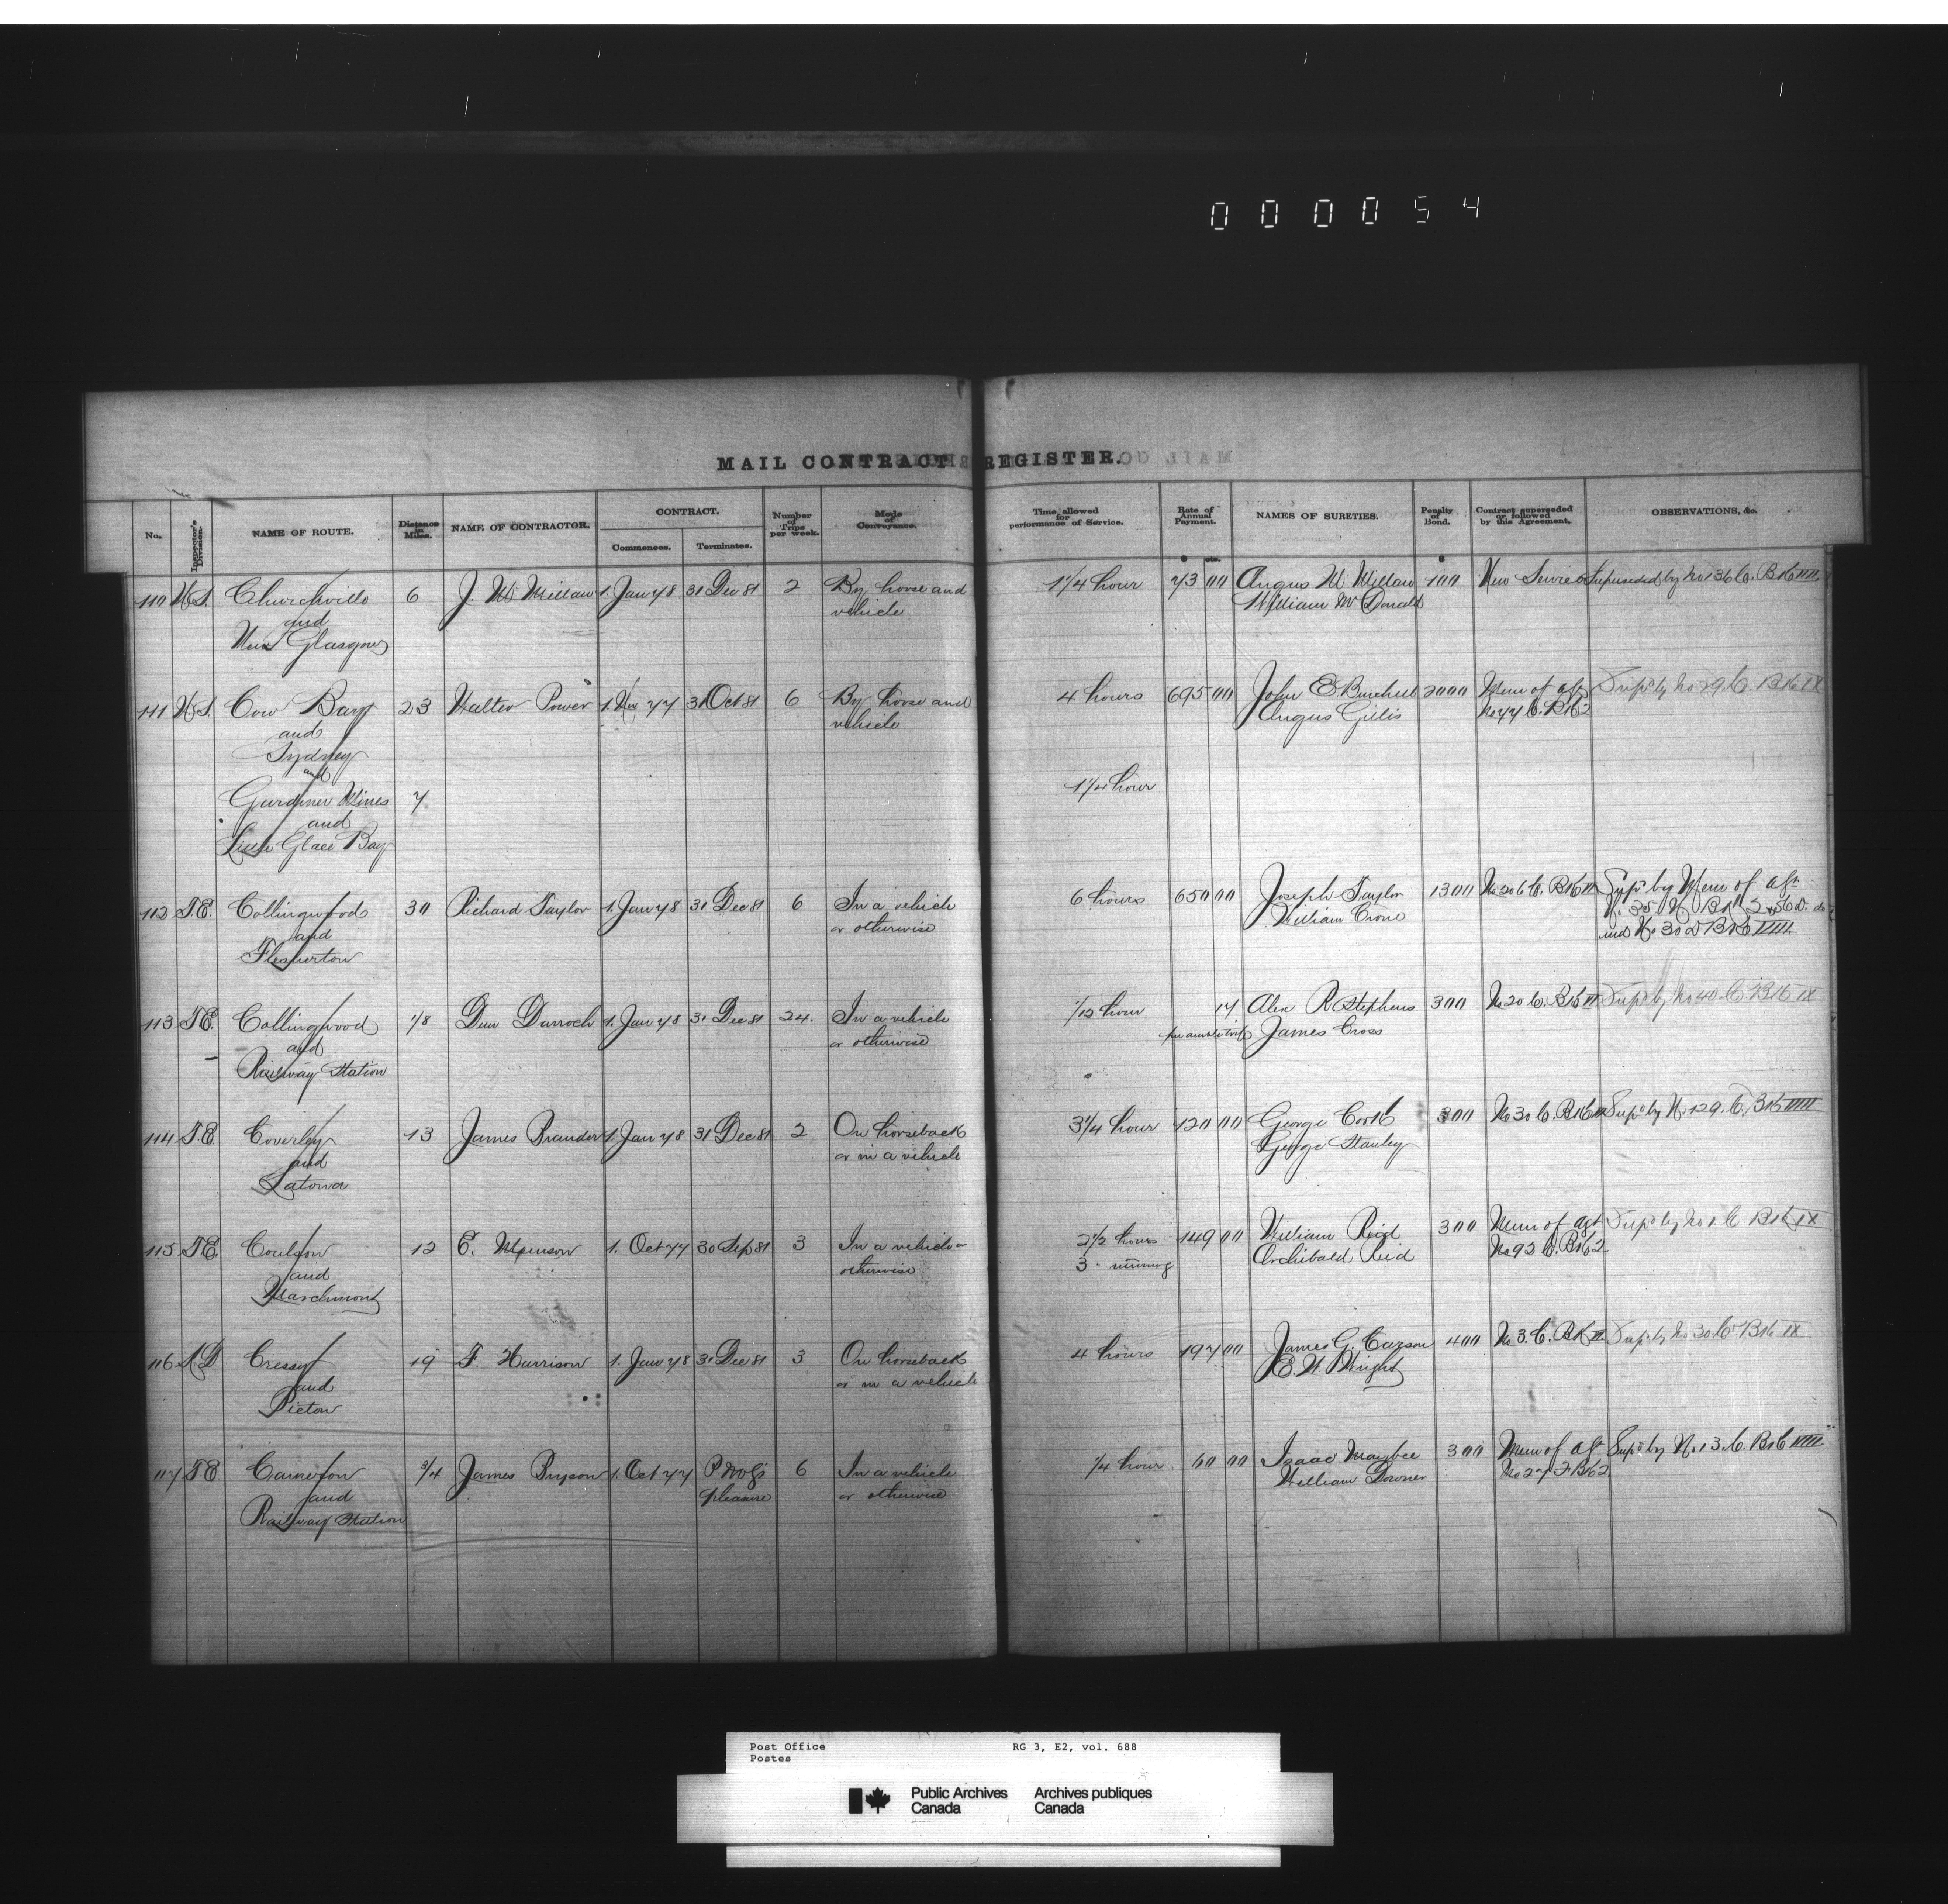 000054
MAIL CONTRACT REGISTER.
No.
Inspector's Division.
NAME OF ROUTE.
Distance in Miles.
NAME OF CONTRACTOR.
CONTRACT.
Commences.
Terminates.
Number of Trips per week.
Mode of Conveyance.
Time allowed for performance of Service.
Rate of Annual Payment.
NAMES OF SURETIES.
Penalty of Bond.
Contract superseded or followed by this Agreement.
OBSERVATIONS, &c.
$ cts. $
110 N.S. Churchville 6 J. McMillan 1. Jan 78 31 Dec 81 2 By horse and 1 1/4 hour 73 00 Angus McMillan 100 New Service Superseded by No 136 C. Bk 6 IIII.
and vehicle William McDonald
New Glasgow
111 N.S. Cow Bay 23 Walter Power 1. Nov 77 31 Oct 81 6 By horse and 4 hours 695 00 John E Burchell 2000 Mem of agt Supd by No 29 C Bk 6 IX
and vehicle Angus Gillis No 77 C. Bk 2
Sydney
and
Gardiner Mines 7 1 1/4 hour
and
Little Glace Bay
112 T.E. Collingwood 30 Richard Taylor 1. Jan 78 31 Dec 81 6 In a vehicle 6 hours 650 00 Joseph Taylor 1300 No 206 C. Bk 6 II Supd by Mem of agt
and or otherwise William Crone
Flesherton and No 30 D Bk 6 IIIII
113 T.E. Collingwood 1/8 Dun Darroch 1. Jan 78 31 Dec 81 24. In a vehicle 1/12 hour 17 Alex R Stephens 300 No 20 C. Bk 6 II Supd by No 40 C Bk 6 IX
and or otherwise James Cross
Railway Station
114 T.E Coverley 13 James Brander 1. Jan 78 31 Dec 81 2 On horseback 3 1/4 hour 120 00 George Cook 300 No 30 C. Bk 6 II Supd by No 129. C. Bk 6 IIIII
and or in a vehicle George Stanley
Latona
115 T.E. Coulson 12 E. Munson 1. Oct 77 30 Sep 81 3 In a vehicle or 2 1/2 hours 149 00 William Reid 300 Mem of agt Supd by No 1 C Bk 6 IX
and otherwise Archibald Reid No 92 C. Bk 2
Marchmont
116 Cressy 19 F. Harrison 1. Jan 78 31 Dec 81 3 On horseback 4 hours 197 00 James G. Carson 400 No 3. C. Bk 6 II. Supd by No 30 C Bk 6 IX
and or in a vehicle E. W. Wright
Picton
117 T.E Cameron 3/4 James Bryson 1. Oct 77 6 In a vehicle 1/4 hour 60 00 Isaac Maybee 300 Mem of agt Supd by No 13. C. Bk 6 IIII
and pleasure or otherwise William Downer No 27 F Bk 2
Railway Station
Post Office
Postes
RG 3, E2, vol. 688
Public Archives
Canada
Archives publiques
Canada